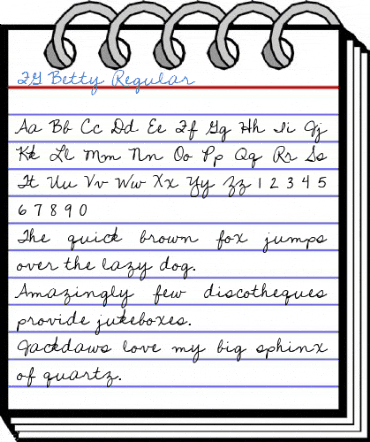 FG Betty Regular
Aa Bb Cc Dd Ee Ff Gg Hh Ii Jj
Kk Ll Mm Nn Oo Pp Qq Rr Ss
Tt Uu Vv Ww Xx Yy Zz 1 2 3 4 5
6 7 8 9 0
The quick brown fox jumps
over the lazy dog.
Amazingly few discotheques
provide jukeboxes.
Jackdaws love my big sphinx
of quartz.